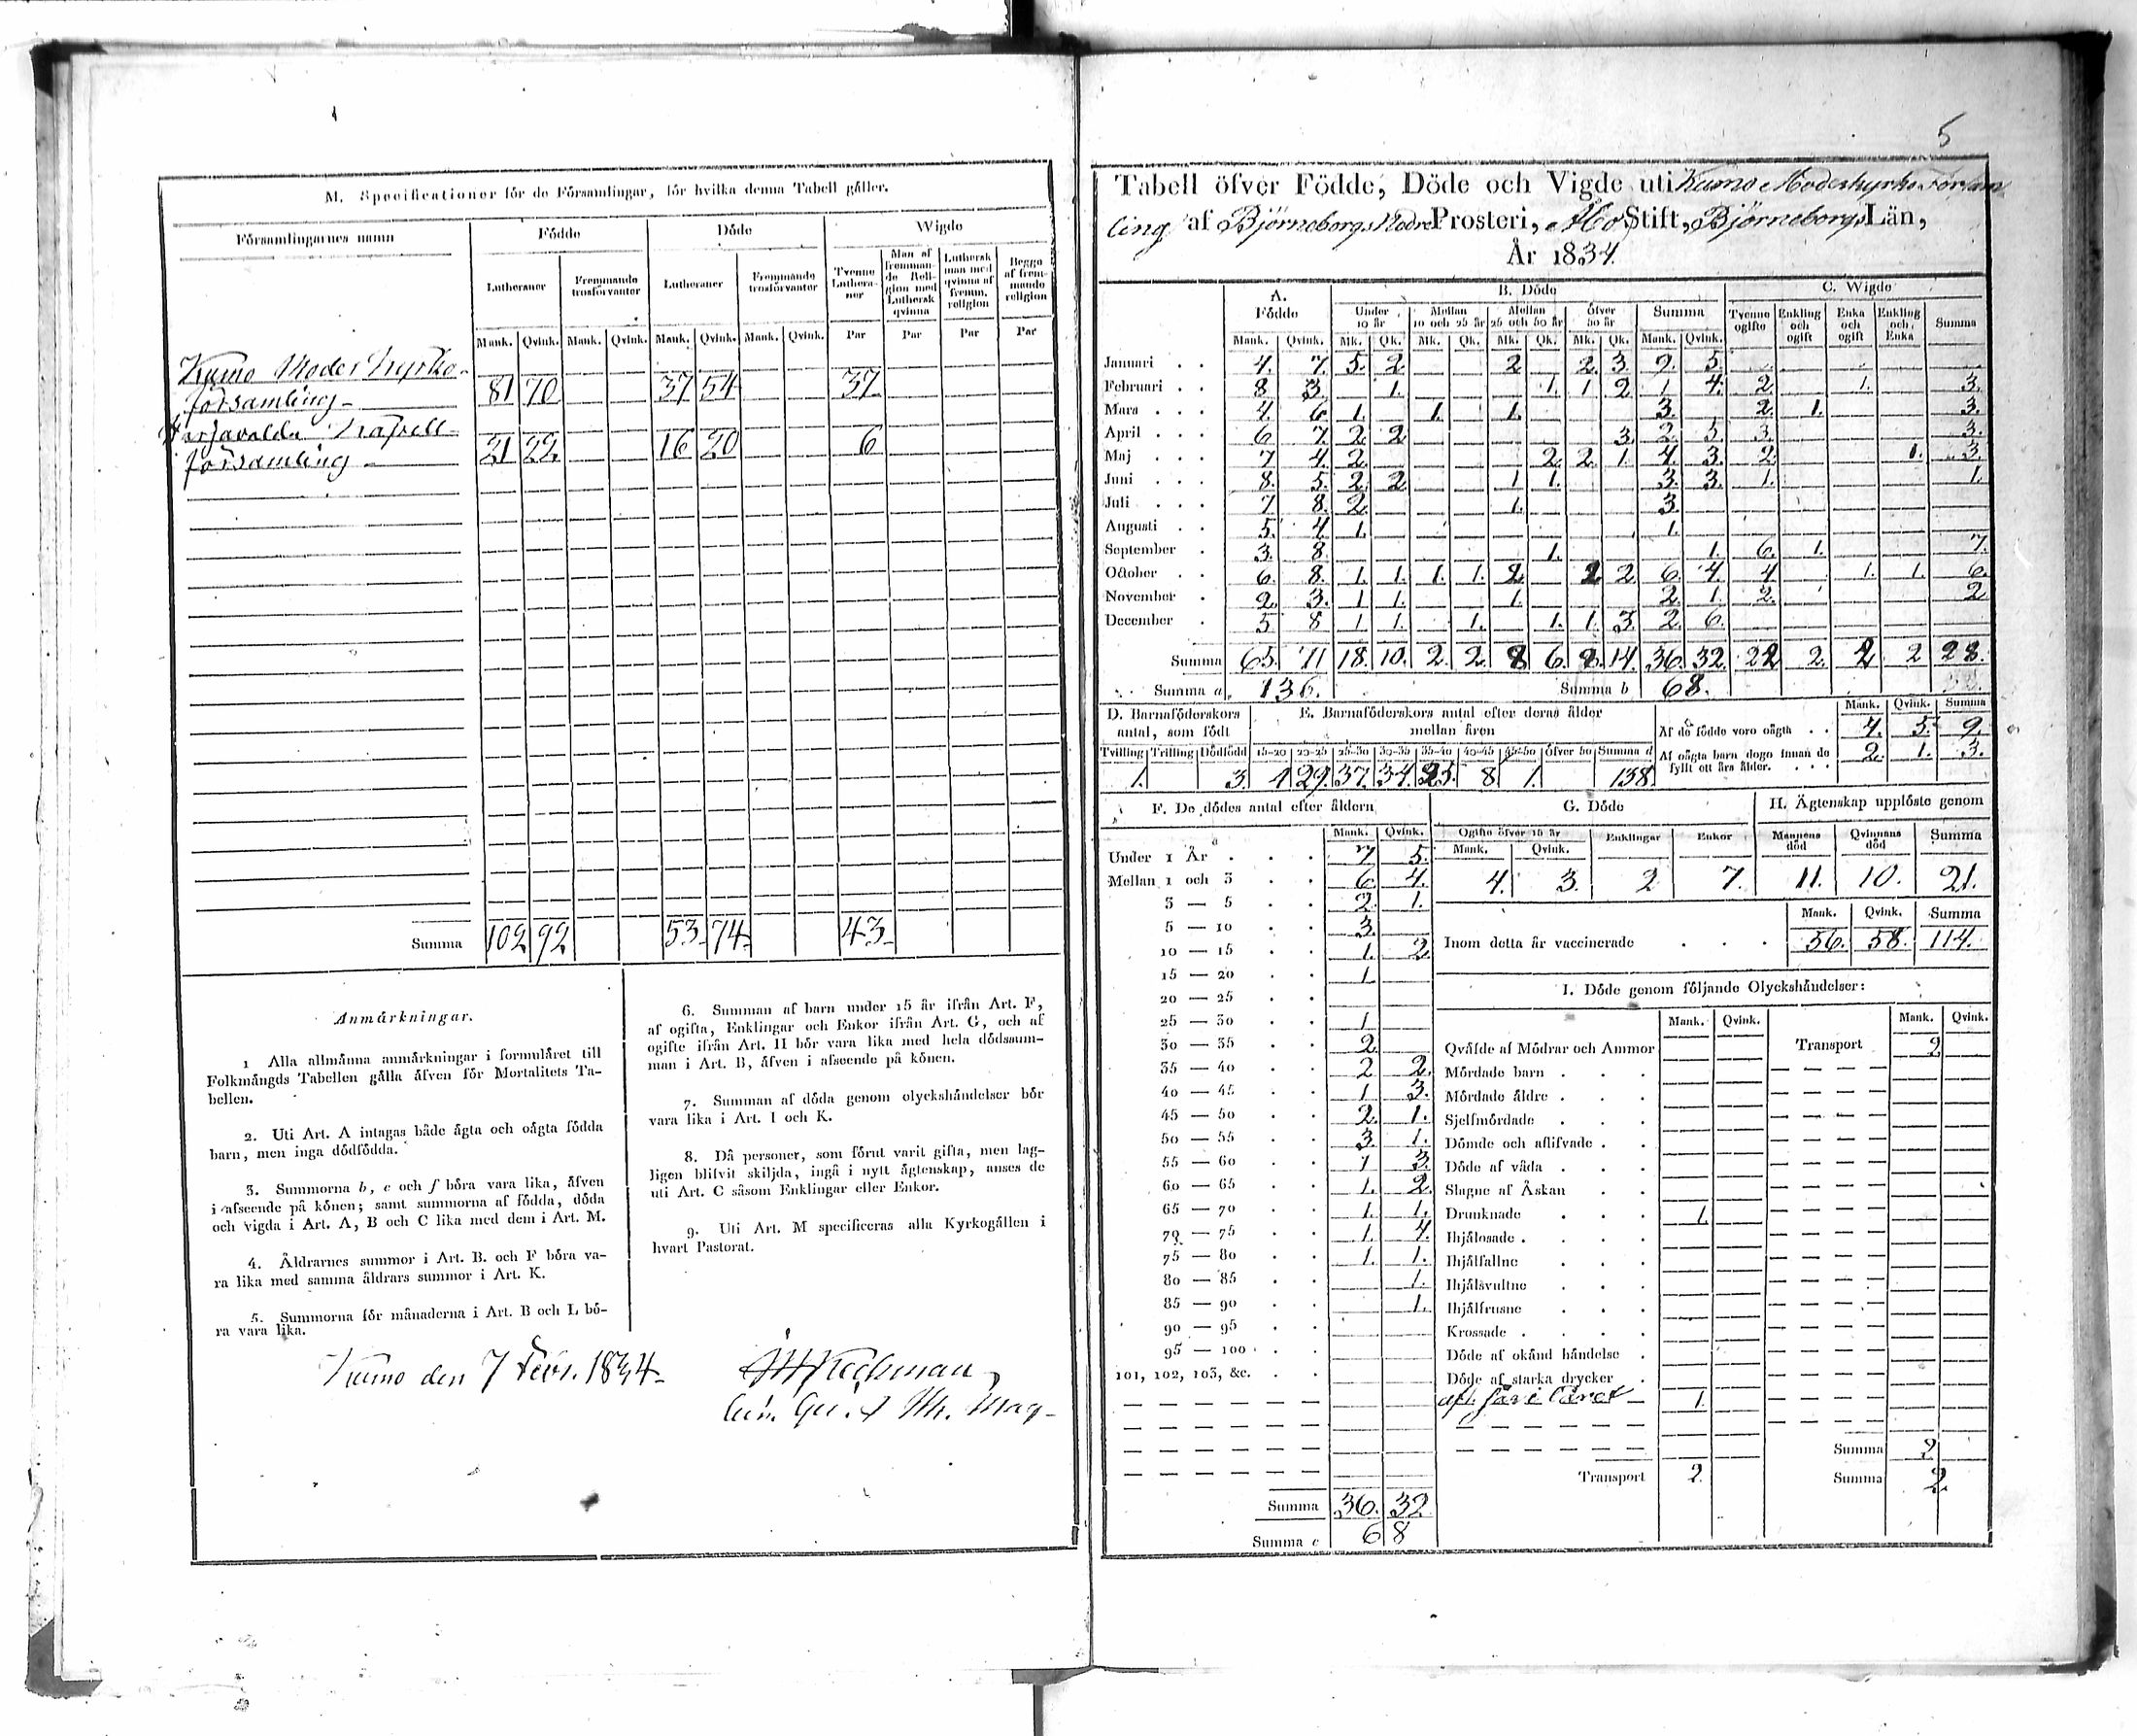 M. Specificationer för de Församlingar, för hvilka denna Tabell gäller.
Församlingarnes namn Födde Döde Wigde
Lutheraner Fremmande trosförvanter Lutheraner Fremmande trosförvanter Tvenne Lutheraner Man af fremmande Religion med Luthersk qvinna Luthersk man med qvinna af fremm. religion Begge af fremmande religion
Mank. Qvink. Mank. Qvink. Mank. Qvink. Mank. Qvink. Par Par Par Par
Kumo Moder Kyrko-
församling 81 70 37 54 37
Harjavalda Kapell
församling 21 22 16 20 6
Summa 102 92 53 74 43
Anmärkningar.
1 Alla allmänna anmärkningar i formuläret till
Folkmängds Tabellen gälla äfven för Mortalitets Ta-
bellen.
2. Uti Art. A intagas både ägta och oägta födda
barn, men inga dödfödda.
3. Summorna b, c och f böra vara lika, äfven
i afseende på könen; samt summorna af födda, döda
och vigda i Art. A, B och C lika med dem i Art. M.
4. Åldrarnes summor i Art. B. och F böra va-
ra lika med samma åldrars summor i Art. K.
5. Summorna för månaderna i Art. B och L bö-
ra vara lika.
6. Summan af barn under 15 år ifrån Art. F,
af ogifta, Enklingar och Enkor ifrån Art. G, och af
ogifte ifrån Art. H bör vara lika med hela dödssum-
man i Art. B, äfven i afseende på könen.
7. Summan af döda genom olyckshändelser bör
vara lika i Art. I och K.
8. Då personer, som förut varit gifta, men lag-
ligen blifvit skiljda, ingå i nytt ägtenskap, anses de
uti Art. C såsom Enklingar eller Enkor.
9. Uti Art. M specificeras alla Kyrkogällen i
hvart Pastorat.
Kumo den 7 Febr. 1834
5
Tabell öfver Födde, Döde och Vigde uti Kumo Moderkyrko Försam
ling af Björneborgs Nedre Prosteri, Åbo Stift, Björneborgs Län,
År 1834.
A. Födde B. Döde C. Wigde
Under 10 år Mellan 10 och 25 år Mellan 25 och 50 år öfver 50 år Summa Tvenne ogifte Enkling och ogift Enka och ogift Enkling och Enka Summa
Mank. Qvink. Mk. Qk. Mk. Qk. Mk. Qk. Mk. Qk. Mank. Qvink.
Januari 4. 7. 5. 2 2 2 3 9. 5.
Februari 8 3. 1. 1. 1 2 1 4. 2 1. 3.
Mars 4. 6 1. 1. 1. 3. 2. 1. 3.
April 6 7. 2 2 3. 2. 5. 3. 3.
Maj 7 4. 2 2. 2. 1. 4. 3. 2 1. 3.
Juni 8. 5. 2 2 1 1. 3. 3. 1. 1.
Juli 7 8. 2 1. 3.
Augusti 5. 4. 1. 1.
September 3. 8. 1. 1. 6. 1. 7.
October 6. 8. 1. 1. 1. 1. 2. 2 2 6. 4. 4 1. 1. 6.
November 2. 3. 1 1. 1. 2. 1. 2. 2
December 5 8 1 1. 1. 1. 1. 3. 2 6.
Summa 65. 71 18. 10. 2. 2. 8 6. 8. 14. 36. 32. 22 2. 2 2 28.
Summa a, 136. Summa b 68.
D. Barnaföderskors antal, som födt E. Barnaföderskors antal efter deras ålder mellan åren Mank. Qvink. Summa
Af de födde voro oägta 4. 5. 9.
Tvilling Trilling Dödfödd 15-20 20-25 25-30 30-35 35-40 40-45 45-50 öfver 50 Summa d
Af oägta barn dogo innan de fyllt ett års ålder. 2. 1. 3.
1. 3. 4 29. 37. 34. 25. 8 1. 138.
F. De dödes antal efter åldern G. Döde H. Ägtenskap upplöste genom
Mank. Qvink. Ogifte öfver 15 år Enklingar Enkor Mannens död Qvinnans död Summa
Under 1 År 7 5. Mank. Qvink.
Mellan 1 och 3 6 4. 4. 3. 2 7. 11. 10. 21.
3 — 5 2. 1.
5 — 10 3. Mank. Qvink. Summa
10 — 15 1. 2 Inom detta år vaccinerade 56. 58. 114.
15 — 20 1
20 — 25 I. Döde genom följande Olyckshändelser:
25 — 30 1 Mank. Qvink. Mank. Qvink.
30 — 35 2 Qväfde af Mödrar och Ammor Transport 2
35 — 40 2 2. Mördade barn
40 — 45 1 3. Mördade äldre
45 — 50 2 1. Sjelfmördade
50 — 55 3. 1. Dömde och aflifvade
55 — 60 1 3. Döde af våda
60 — 65 1. 2. Slagne af Åskan
65 — 70 1. 1. Drunknade 1.
70 — 75 1. 4. Ihjälosade
75 — 80 1. 1. Ihjälfallne
80 — 85 1. Ihjälsvultne
85 — 90 1. Ihjälfrusne
90 — 95 Krossade
95 — 100 Döde af okänd händelse
101, 102, 103, &c. Döde af starka drycker
af sår i låret 1.
Summa 2
Transport 2. Summa 2.
Summa 36. 32
Summa c 68